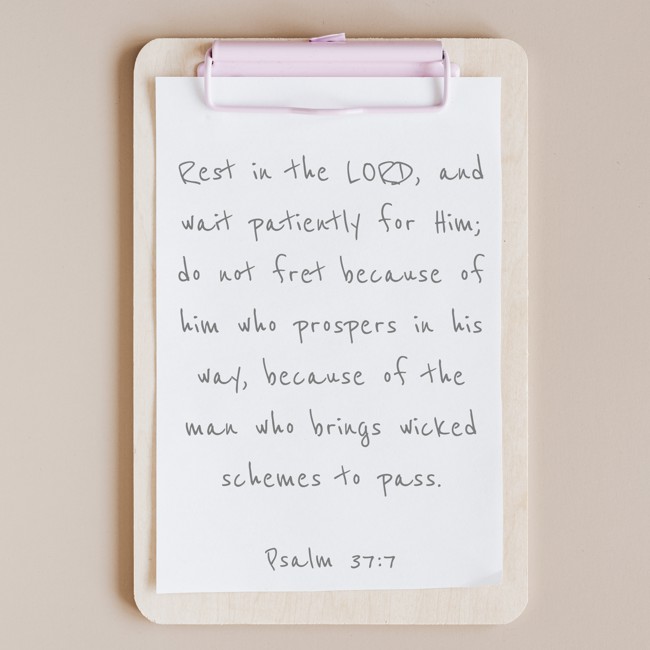 Rest in the LORD, and
wait patiently for Him;
do not fret because of
him who prospers in his
way, because of the
man who brings wicked
schemes to pass.
Psalm 37:7